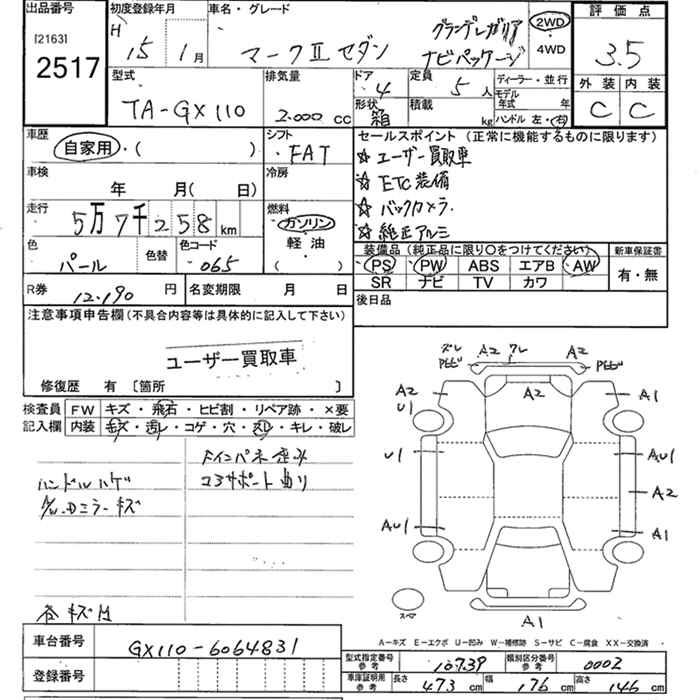 出品番号 初度登録年月 車名・グレード 評価点
[2163] H 15年 1月 マークⅡセダン グランデレガリア ナビパッケージ 2WD 4WD 3.5
2517
型式 排気量 ドア 定員 ディーラー・並行 外装 内装
TA-GX110 2.000 cc 4 5人 モデル年式 年 C C
形状 箱 積載 kg ハンドル 左・右
車歴 シフト セールスポイント(正常に機能するものに限ります)
自家用・( ) ・FAT ☆ ユーザー買取車
車検 冷房 ☆ ETC装備
年 月( 日) ☆ バックカメラ.
走行 燃料 ☆ 純正アルミ
5万7千258km ガソリン
色 色替 色コード 軽油 装備品(純正品に限り○をつけてください) 新車保証書
パール ・065 ( ) PS PW ABS エアB AW 有・無
SR ナビ TV カワ
R券 12.190 円 名変期限 月 日 後日品
注意事項申告欄(不具合内容等は具体的に記入して下さい)
ユーザー買取車
修復歴 有 〔箇所 〕
検査員 FW キズ・飛石・ヒビ割・リペア跡・×要
記入欄 内装 キズ・汚レ・コゲ・穴・スレ・キレ・破レ
Fインパネ歪み
ハンドルハゲ コアサポート曲り
ドミラーキズ
各キズ凹
A2 ワレ A2
A2
A2 A1
U1
U1 AU1
A2
AU1 A1
スペア
A1
A-キズ E-エクボ U-凹み W-補修跡 S-サビ C-腐食 XX-交換済
車台番号 GX110-6064831
登録番号
型式指定番号 参考 10739 類別区分番号 参考 0002
車庫証明用 参考 長さ 473 cm 幅 176 cm 高さ 146 cm